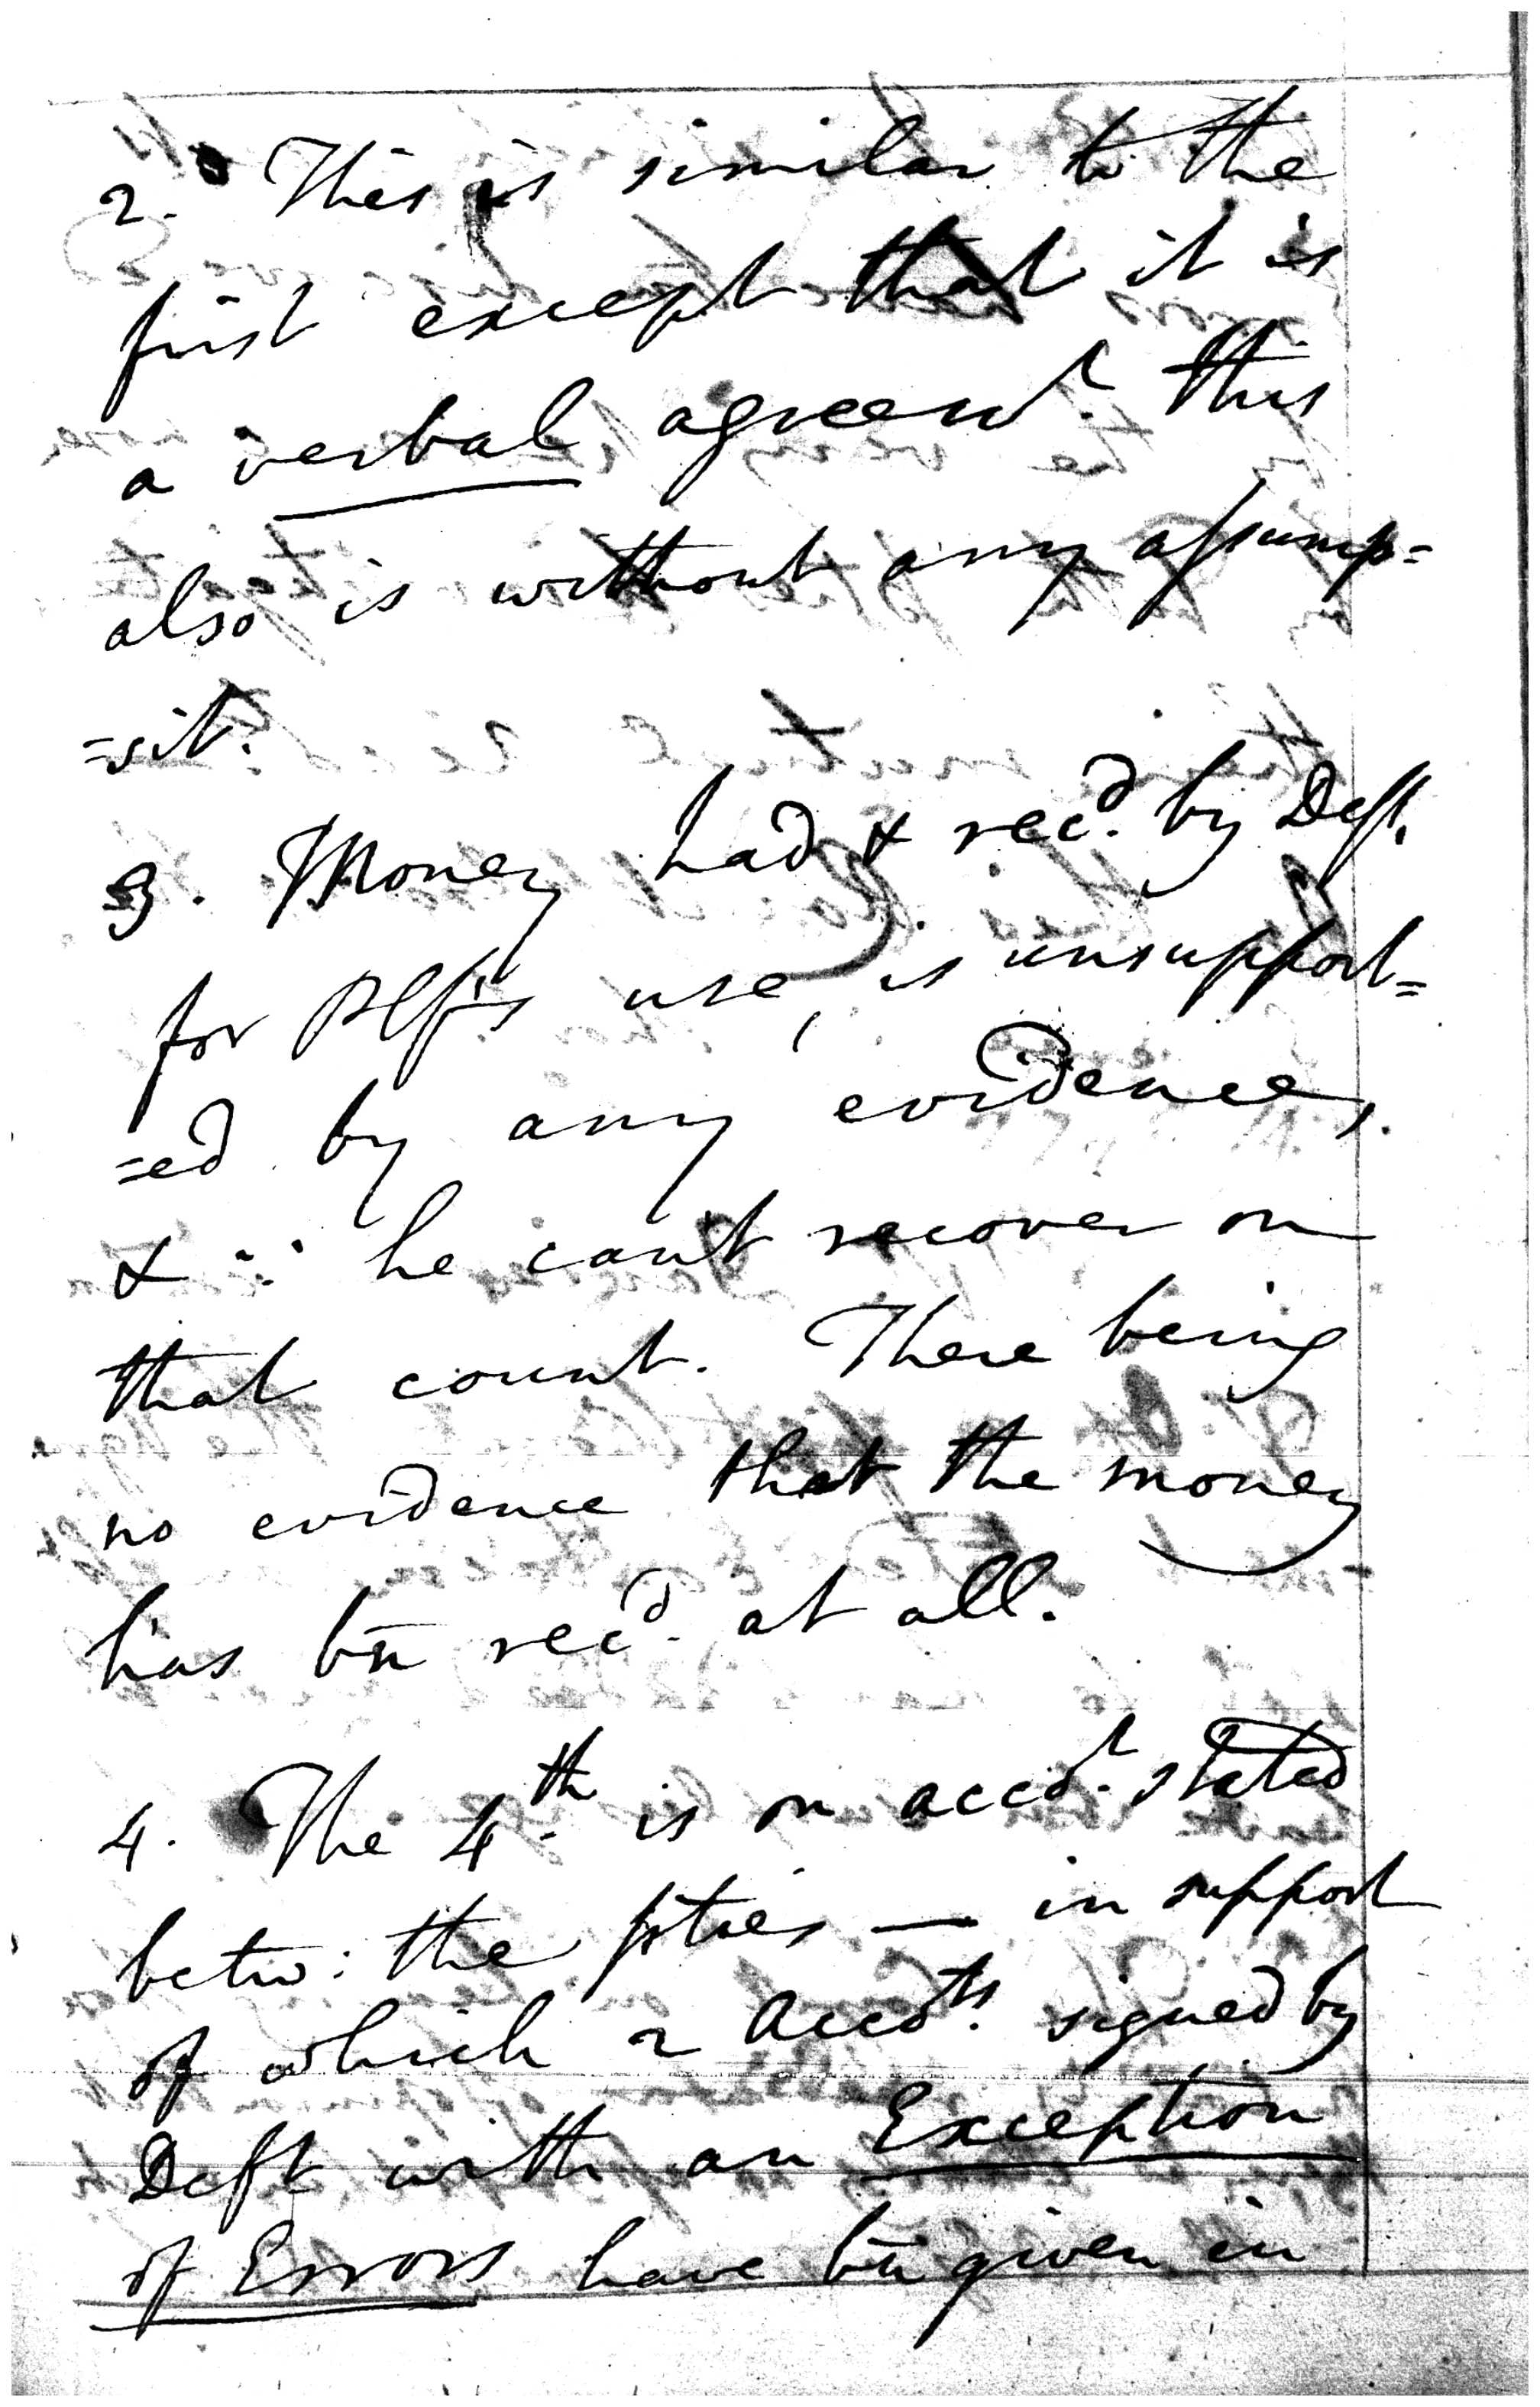 2. This is similar to the
first except that it is
a verbal agreemt. this
also is without any assump=
=sit.
3. Money had & recd. by Deft.
for Plf's use, is unsupport=
=ed by any evidence,
& ∴ he can't recover on
that count. There being
no evidence that the money
has bn recd. at all.
4. The 4th. is on accot. stated
betw: the pties — in support
of which 2 Accots. signed by
Deft with an Exception
of Errors have bn given in